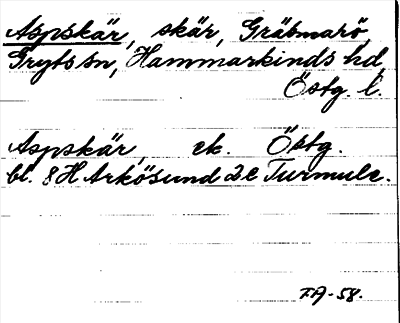 Aspskär, skär, Gräsmarö,
Gryts sn, Hammarkinds hd,
Östg. l.
Aspskär, ek. Östg.
bl. 8H Arkösund 2e Turmulc.
FA-58.